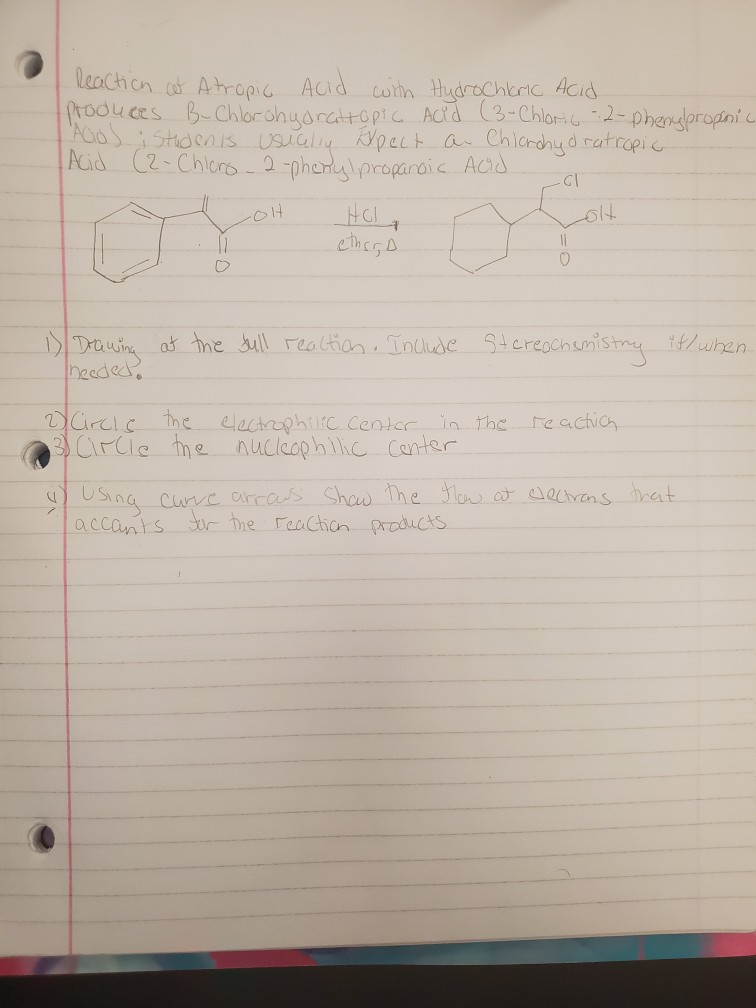 Reaction of Atropic Acid with Hydrochloric Acid
produces B-Chlorohydratropic Acid (3-Chloric -2-phenylpropanic
Acid) ; Students usually Expect a- Chlorohydratropic
Acid (2-Chloro-2-phenylpropanoic Acid
Cl
OH HCl OH
ether, Δ
O O
1) Drawing of the full reaction. Include Stereochemistry if/when
needed.
2) Circle the electrophilic center in the reaction
3) Circle the nucleophilic center
4) Using curve arrows Show the flow of electrons that
accants for the reaction products